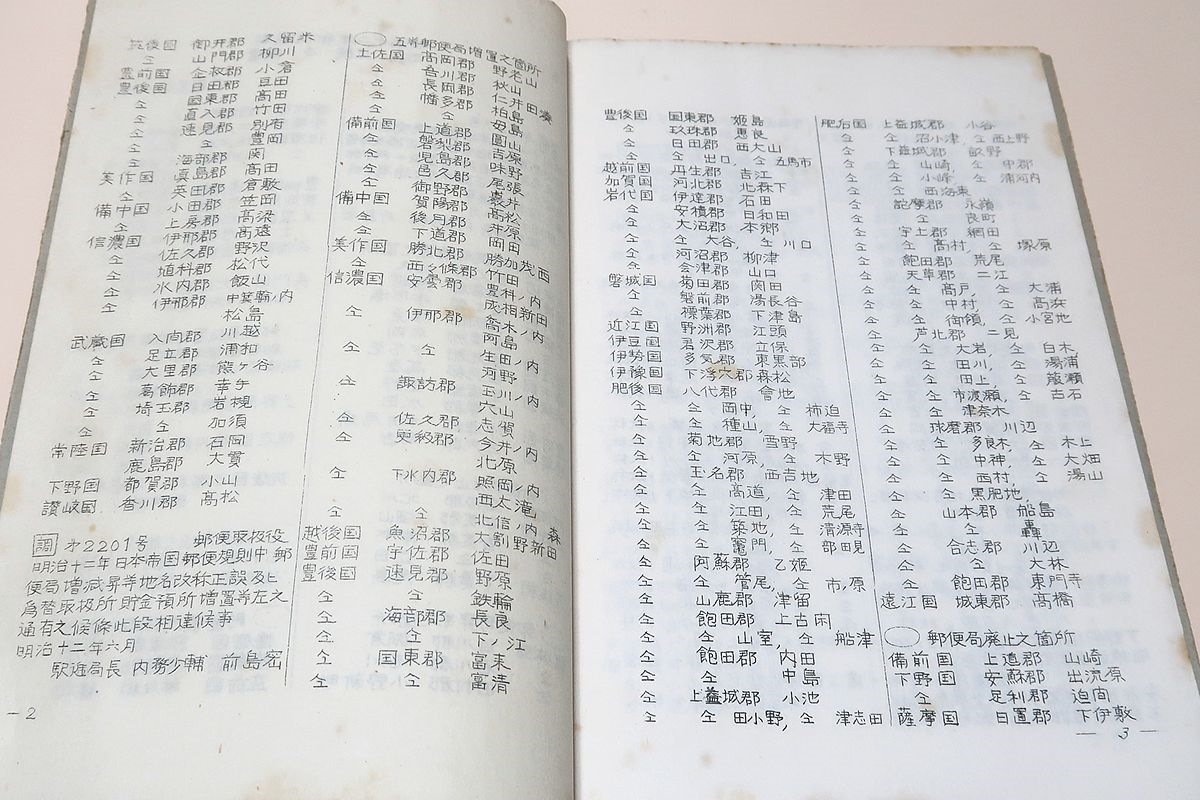 筑後国 御井郡 久留米
仝 山門郡 柳川
豊前国 企救郡 小倉
豊後国 日田郡 豆田
仝 国東郡 高田
仝 直入郡 竹田
仝 速見郡 別有
仝 仝 豊岡
仝 海部郡 関
美作国 真島郡 高田
仝 英田郡 倉敷
備中国 小田郡 笠岡
仝 上房郡 高梁
信濃国 伊那郡 高遠
仝 佐久郡 野沢
仝 埴科郡 松代
仝 水内郡 飯山
仝 伊那郡 中箕輪ノ内
松島
武蔵国 入間郡 川越
仝 足立郡 浦和
仝 大里郡 熊ヶ谷
仝 葛飾郡 幸手
仝 埼玉郡 岩槻
仝 仝 加須
常陸国 新治郡 石岡
仝 鹿島郡 大貫
下野国 都賀郡 小山
讃岐国 香川郡 高松
調 第2201号 郵便取扱役
明治十二年日本帝国郵便規則中郵
便局増減昇等地名改称正誤及ヒ
為替取扱所貯金預所増置等左之
通有之候條此段相達候事
明治十二年六月
駅逓局長 内務少輔 前島密
― 2
五等郵便局増置之箇所
土佐国 高岡郡
仝 吾川郡
仝 長岡郡
仝 幡多郡
備前国 上道郡
仝 磐梨郡
仝 児島郡
仝 邑久郡
仝 御野郡
備中国 賀陽郡
仝 後月郡
仝 下道郡
美作国 勝北郡 勝加茂西
仝 西々條郡 竹田
信濃国 安曇郡 豊科ノ内
成相新田
仝 伊那郡 喬木ノ内
阿島
仝 仝 生田ノ内
河野
仝 諏訪郡 玉川ノ内
穴山
仝 佐久郡 志賀
仝 更級郡 今井ノ内
北原
仝 下水内郡 照岡ノ内
西大滝
仝 仝 北信ノ内
越後国 魚沼郡 大割野新田
豊前国 宇佐郡 佐田
豊後国 速見郡 野原
仝 仝 鉄輪
仝 海部郡 長良
仝 仝 下ノ江
仝 国東郡 富来
仝 仝 富清
豊後国 国東郡 姫島
仝 玖珠郡 恵良
仝 日田郡 西大山
仝 仝 出口, 仝 五馬市
越前国 丹生郡 吉江
加賀国 河北郡 北森下
岩代国 伊達郡 石田
仝 安積郡 日和田
仝 大沼郡 本郷
仝 仝 大谷, 仝 川口
仝 河沼郡 柳津
仝 会津郡 山口
磐城国 菊田郡 関田
仝 磐前郡 湯長谷
仝 標葉郡 下津島
近江国 野洲郡 江頭
伊豆国 君沢郡 立保
伊勢国 多気郡 東黒部
伊豫国 下浮穴郡 森松
肥後国 八代郡 會地
仝 仝 岡中, 仝 柿迫
仝 仝 種山, 仝 大福寺
仝 菊地郡 雪野
仝 仝 河原, 仝 木野
仝 玉名郡 西吉地
仝 仝 高道, 仝 津田
仝 仝 江田, 仝 荒尾
仝 仝 築地, 仝 清源寺
仝 仝 竈門, 仝 部田見
仝 阿蘇郡 乙姫
仝 仝 管尾, 仝 市ノ原
仝 山鹿郡 津留
仝 飽田郡 上古閑
仝 仝 山室, 仝 船津
仝 飽田郡 内田
仝 仝 中島
仝 上益城郡 小池
仝 仝 田小野, 仝 津志田
肥后国 上益城郡 小谷
仝 仝 沼小津, 仝 西上野
仝 下益城郡 畝野
仝 仝 山崎, 仝 中郡
仝 仝 小峰, 仝 浦河内
仝 仝 西海東
仝 詫摩郡 永嶺
仝 仝 良町
仝 宇土郡 網田
仝 仝 高村, 仝 塚原
仝 飽田郡 荒尾
仝 天草郡 二江
仝 仝 高戸, 仝 大浦
仝 仝 中村, 仝 高浜
仝 仝 御領, 仝 小宮地
仝 芦北郡 二見
仝 仝 大岩, 仝 白木
仝 仝 田川, 仝 湯浦
仝 仝 田上, 仝 籠瀬
仝 仝 市渡瀬, 仝 古石
仝 仝 津奈木
仝 球麿郡 川辺
仝 仝 多良木, 仝 木上
仝 仝 中神, 仝 大畑
仝 仝 西村, 仝 湯山
仝 仝 黒肥地,
仝 山本郡 船島
仝 仝 轟
仝 合志郡 川辺
仝 仝 大林
仝 飽田郡 東門寺
遠江国 城東郡 高橋
郵便局廃止之箇所
備前国 上道郡 山崎
下野国 安蘇郡 出流原
仝 足利郡 迫間
薩摩国 日置郡 下伊敷
― 3 ―